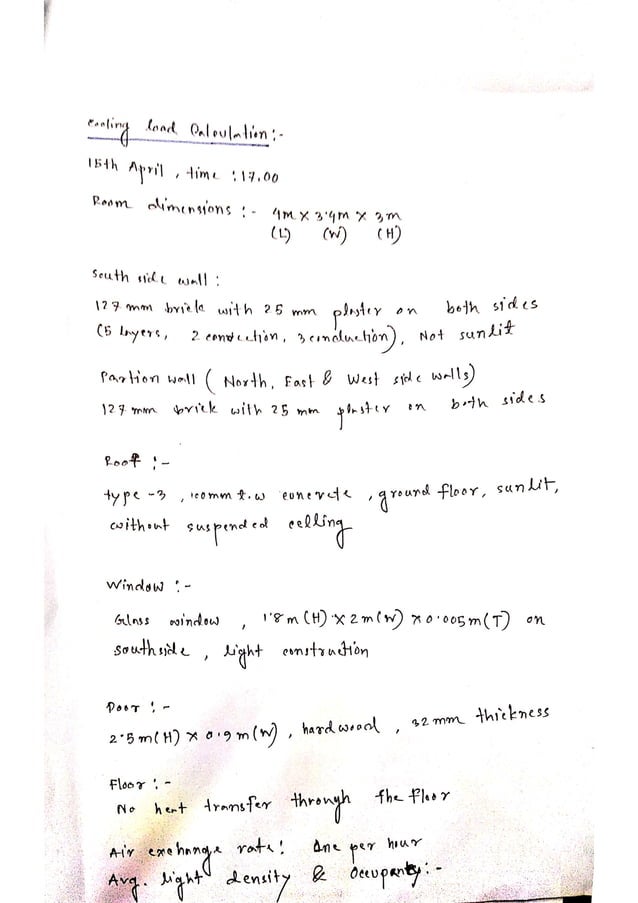 Cooling load Calculation :-
15th April, time : 17.00
Room dimensions :- 4m X 3.4m X 3m
(L) (W) (H)
South side wall :
127 mm brick with 25 mm plaster on both sides
(5 layers, 2 convection, 3 conduction), Not sunlit
Partion wall ( North, East & West side walls)
127 mm brick with 25 mm plaster on both sides
Roof :-
type -3, 100mm t.w concrete, ground floor, sunlit,
without suspended celling
Window :-
Glass window, 1.8 m (H) X 2m (W) X 0.005m (T) on
southside, light construction
Door :-
2.5m (H) X 0.9 m (W), hardwood, 32 mm thickness
Floor :-
No heat transfer through the floor
Air exchange rate : One per hour
Avg. light density & Occupants :-